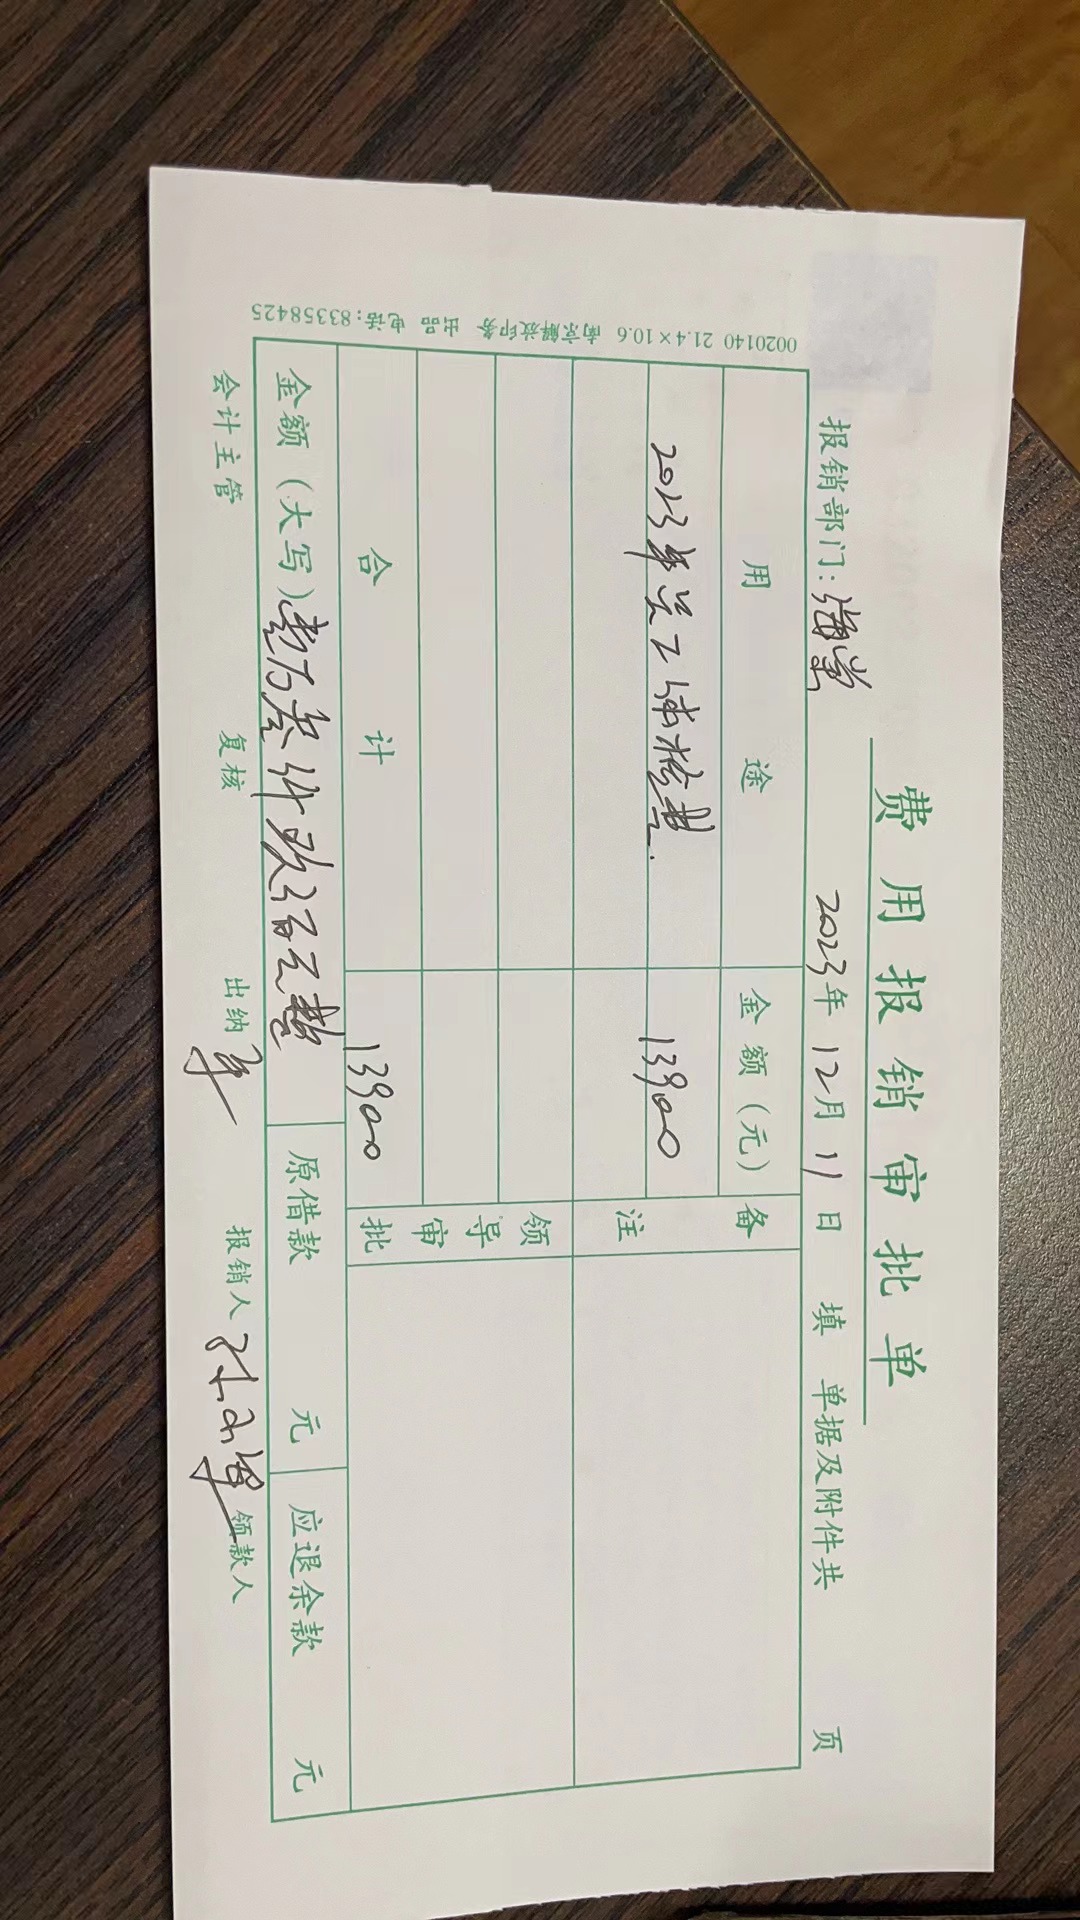 费用报销审批单
报销部门：海棠 2023年12月11日 填 单据及附件共 页
用途 金额（元） 备注
2023年员工体检费. 13900
领导审批
合计 13900
金额（大写）壹万叁仟玖佰元整 原借款 元 应退余款 元
会计主管 复核 出纳 报销人 领款人
0020140 21.4×10.6 南京解放印务 出品 电话：83358425